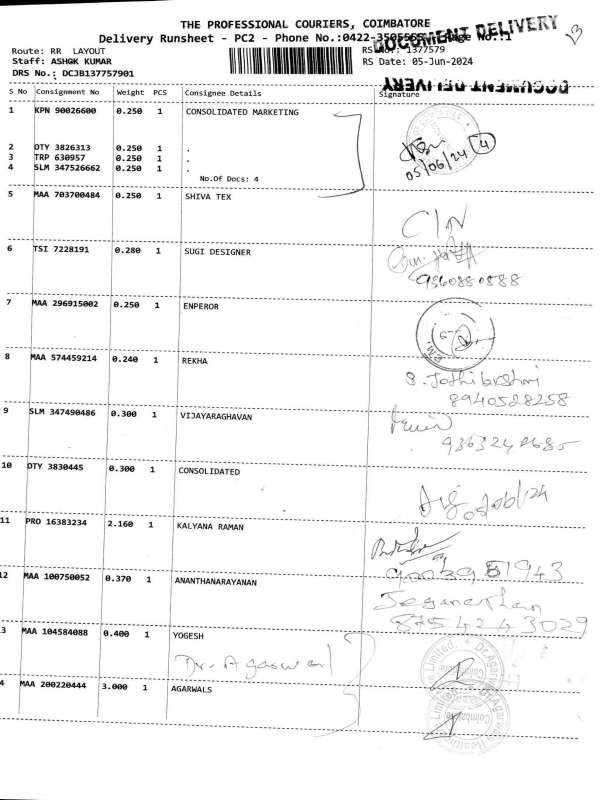 THE PROFESSIONAL COURIERS, COIMBATORE
Delivery Runsheet - PC2 - Phone No.:0422-3505555 Page No.:1
DOCUMENT DELIVERY
13
Route: RR LAYOUT
RS No.: 1377579
Staff: ASHGK KUMAR
RS Date: 05-Jun-2024
DRS No.: DCJB137757901
DOCUMENT DELIVERY
S No Consignment No Weight PCS Consignee Details Signature
1 KPN 90026600 0.250 1 CONSOLIDATED MARKETING
2 OTY 3826313 0.250 1 .
3 TRP 630957 0.250 1 .
4 SLM 347526662 0.250 1 .
4
05/06/24
No.Of Docs: 4
5 MAA 703700484 0.250 1 SHIVA TEX
C/N
6 TSI 7228191 0.280 1 SUGI DESIGNER
9360850888
7 MAA 296915002 0.250 1 ENPEROR
P.M.
8 MAA 574459214 0.240 1 REKHA
S. Jothilakshmi
8940528258
9 SLM 347490486 0.300 1 VIJAYARAGHAVAN
10 OTY 3830445 0.300 1 CONSOLIDATED
05/06/24
11 PRO 16383234 2.160 1 KALYANA RAMAN
12 MAA 100750052 0.370 1 ANANTHANARAYANAN
Jeganathan
8754243029
3 MAA 104584088 0.400 1 YOGESH
Dr. Agarwal
4 MAA 200220444 3.000 1 AGARWALS